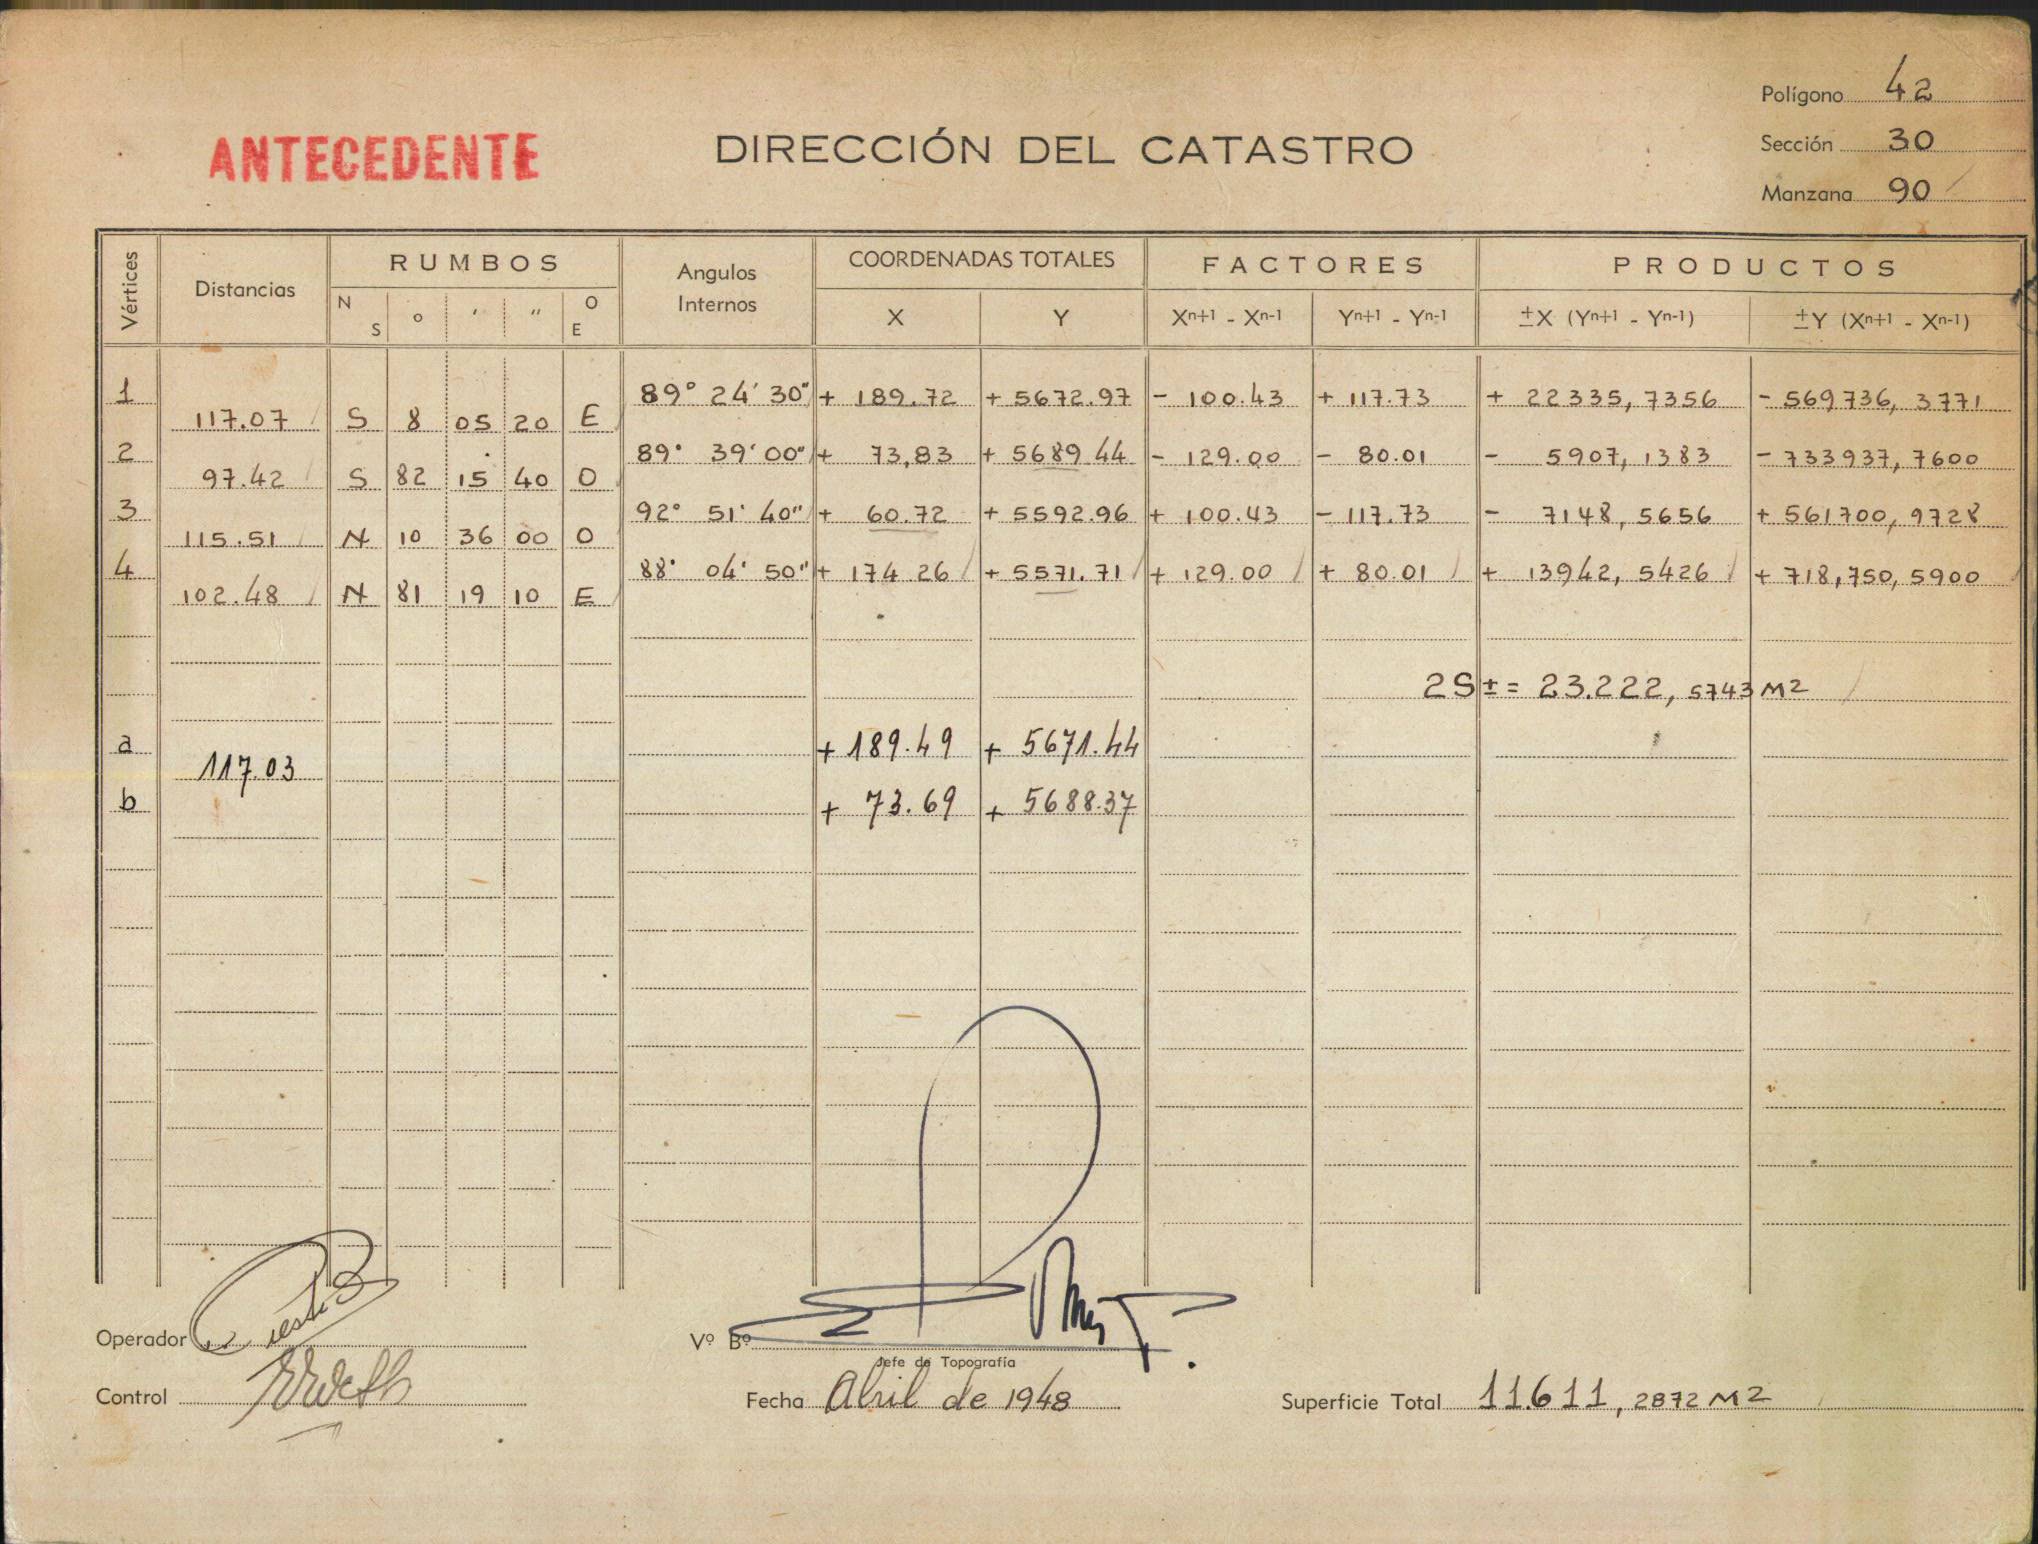 Polígono 42
ANTECEDENTE
DIRECCIÓN DEL CATASTRO
Sección 30
Manzana 90
Vértices Distancias RUMBOS Angulos Internos COORDENADAS TOTALES FACTORES PRODUCTOS
N S ° ′ ″ O E X Y Xⁿ⁺¹ - Xⁿ⁻¹ Yⁿ⁺¹ - Yⁿ⁻¹ ±X (Yⁿ⁺¹ - Yⁿ⁻¹) ±Y (Xⁿ⁺¹ - Xⁿ⁻¹)
1 89° 24' 30" + 189.72 + 5672.97 - 100.43 + 117.73 + 22335,7356 - 569736,3771
117.07 S 8 05 20 E
2 89° 39' 00" + 73,83 + 5689.44 - 129.00 - 80.01 - 5907,1383 - 733937,7600
97.42 S 82 15 40 O
3 92° 51' 40" + 60.72 + 5592.96 + 100.43 - 117.73 - 7148,5656 + 561700,9728
115.51 N 10 36 00 O
4 88° 04' 50" + 174.26 + 5571.71 + 129.00 + 80.01 + 13942,5426 + 718,750,5900
102.48 N 81 19 10 E
2S ± = 23.222,5743 M2
a + 189.49 + 5671.44
117.03
b + 73.69 + 5688.37
Operador
Vº Bº
Jefe de Topografía
Control
Fecha Abril de 1948
Superficie Total 11.611,2872 M2